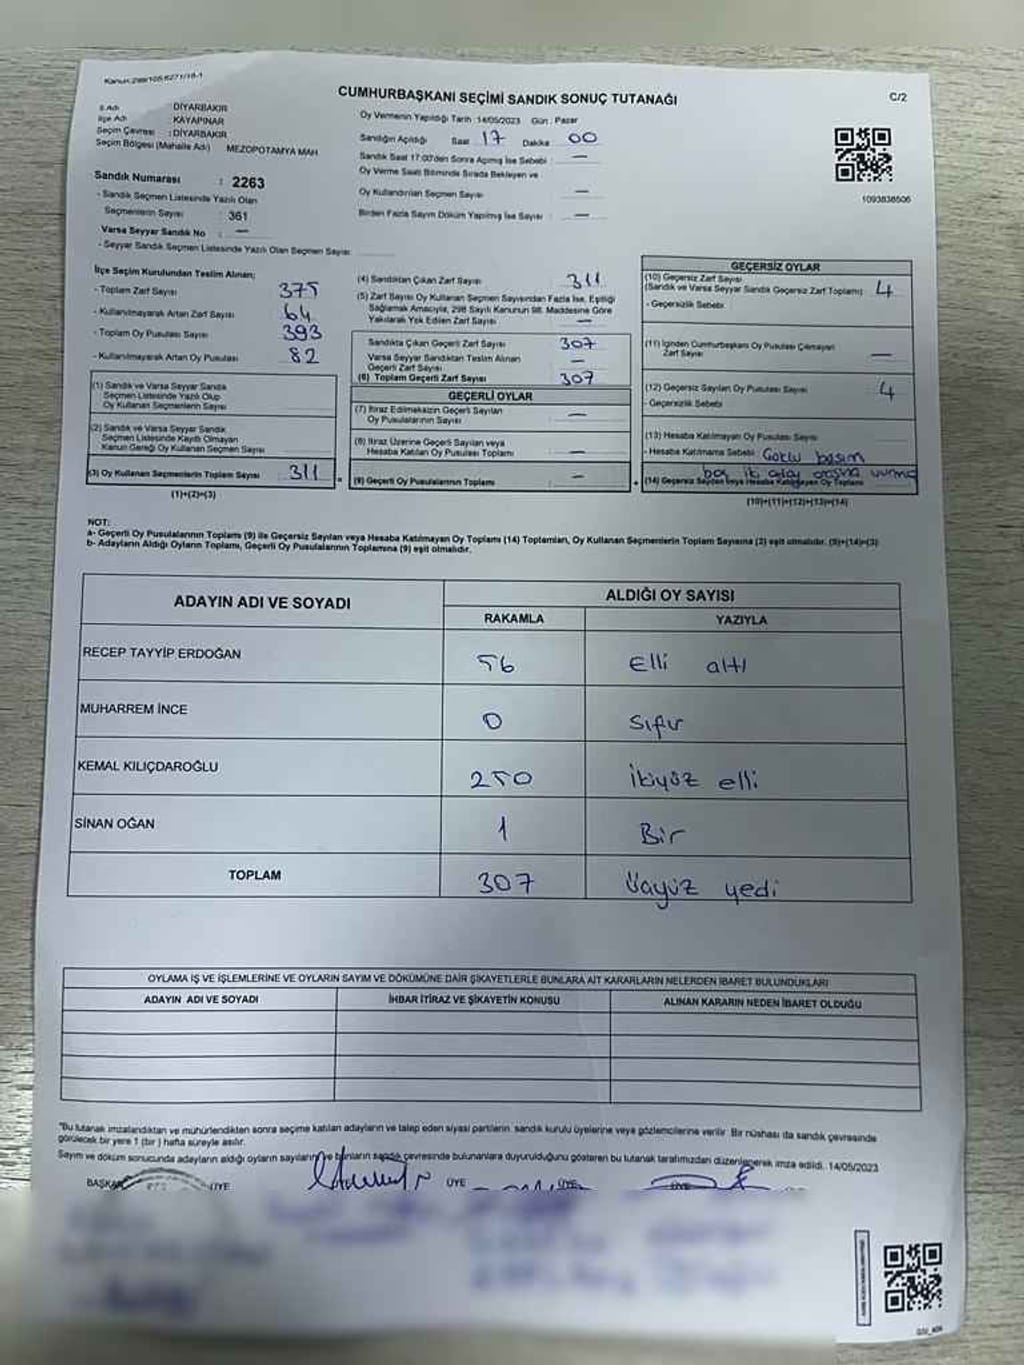 Kanun:298/105 6271/18-1
CUMHURBAŞKANI SEÇİMİ SANDIK SONUÇ TUTANAĞI
C/2
İl Adı DİYARBAKIR
İlçe Adı KAYAPINAR
Seçim Çevresi : DİYARBAKIR
Seçim Bölgesi (Mahalle Adı) MEZOPOTAMYA MAH
Sandık Numarası : 2263
- Sandık Seçmen Listesinde Yazılı Olan
Seçmenlerin Sayısı : 361
Varsa Seyyar Sandık No : —
- Seyyar Sandık Seçmen Listesinde Yazılı Olan Seçmen Sayısı
Oy Vermenin Yapıldığı Tarih : 14/05/2023 Gün : Pazar
Sandığın Açıldığı Saat 17 Dakika 00
Sandık Saat 17:00'den Sonra Açılmış İse Sebebi : —
Oy Verme Saati Bitiminde Sırada Bekleyen ve
Oy Kullandırılan Seçmen Sayısı : —
Birden Fazla Sayım Döküm Yapılmış İse Sayısı : —
1093838506
İlçe Seçim Kurulundan Teslim Alınan;
- Toplam Zarf Sayısı 375
- Kullanılmayarak Artan Zarf Sayısı 64
- Toplam Oy Pusulası Sayısı 393
- Kullanılmayarak Artan Oy Pusulası 82
(1) Sandık ve Varsa Seyyar Sandık
Seçmen Listesinde Yazılı Olup
Oy Kullanan Seçmenlerin Sayısı
(2) Sandık ve Varsa Seyyar Sandık
Seçmen Listesinde Kayıtlı Olmayan
Kanun Gereği Oy Kullanan Seçmen Sayısı
(3) Oy Kullanan Seçmenlerin Toplam Sayısı 311
(1)+(2)=(3)
(4) Sandıktan Çıkan Zarf Sayısı 311
(5) Zarf Sayısı Oy Kullanan Seçmen Sayısından Fazla İse, Eşitliği
Sağlamak Amacıyla, 298 Sayılı Kanunun 98. Maddesine Göre
Yakılarak Yok Edilen Zarf Sayısı —
Sandıkta Çıkan Geçerli Zarf Sayısı 307
Varsa Seyyar Sandıktan Teslim Alınan
Geçerli Zarf Sayısı —
(6) Toplam Geçerli Zarf Sayısı 307
GEÇERLİ OYLAR
(7) İtiraz Edilmeksizin Geçerli Sayılan
Oy Pusulalarının Sayısı —
(8) İtiraz Üzerine Geçerli Sayılan veya
Hesaba Katılan Oy Pusulası Toplamı —
(9) Geçerli Oy Pusulalarının Toplamı —
GEÇERSİZ OYLAR
(10) Geçersiz Zarf Sayısı
(Sandık ve Varsa Seyyar Sandık Geçersiz Zarf Toplamı) 4
- Geçersizlik Sebebi
(11) İçinden Cumhurbaşkanı Oy Pusulası Çıkmayan
Zarf Sayısı —
(12) Geçersiz Sayılan Oy Pusulası Sayısı 4
- Geçersizlik Sebebi
(13) Hesaba Katılmayan Oy Pusulası Sayısı
- Hesaba Katılmama Sebebi
(14) Geçersiz Sayılan veya Hesaba Katılmayan Oy Toplamı
(10)+(11)+(12)+(13)=(14)
NOT:
a- Geçerli Oy Pusulalarının Toplamı (9) ile Geçersiz Sayılan veya Hesaba Katılmayan Oy Toplamı (14) Toplamları, Oy Kullanan Seçmenlerin Toplam Sayısına (3) eşit olmalıdır. (9)+(14)=(3)
b- Adayların Aldığı Oyların Toplamı, Geçerli Oy Pusulalarının Toplamına (9) eşit olmalıdır.
ADAYIN ADI VE SOYADI ALDIĞI OY SAYISI
RAKAMLA YAZIYLA
RECEP TAYYİP ERDOĞAN 56 Elli altı
MUHARREM İNCE 0 Sıfır
KEMAL KILIÇDAROĞLU 250 İkiyüz elli
SİNAN OĞAN 1 Bir
TOPLAM 307 Üçyüz yedi
OYLAMA İŞ VE İŞLEMLERİNE VE OYLARIN SAYIM VE DÖKÜMÜNE DAİR ŞİKAYETLERLE BUNLARA AİT KARARLARIN NELERDEN İBARET BULUNDUKLARI
ADAYIN ADI VE SOYADI İHBAR İTİRAZ VE ŞİKAYETİN KONUSU ALINAN KARARIN NEDEN İBARET OLDUĞU
"Bu tutanak imzalandıktan ve mühürlendikten sonra seçime katılan adayların ve talep eden siyasi partilerin, sandık kurulu üyelerine veya gözlemcilerine verilir. Bir nüshası da sandık çevresinde
görülecek bir yere 1 (bir) hafta süreyle asılır.
Sayım ve döküm sonucunda adayların aldığı oyların sayılarını ve bunların sandık çevresinde bulunanlara duyurulduğunu gösteren bu tutanak tarafımızdan düzenlenerek imza edildi. 14/05/2023
BAŞKAN ÜYE ÜYE ÜYE ÜYE